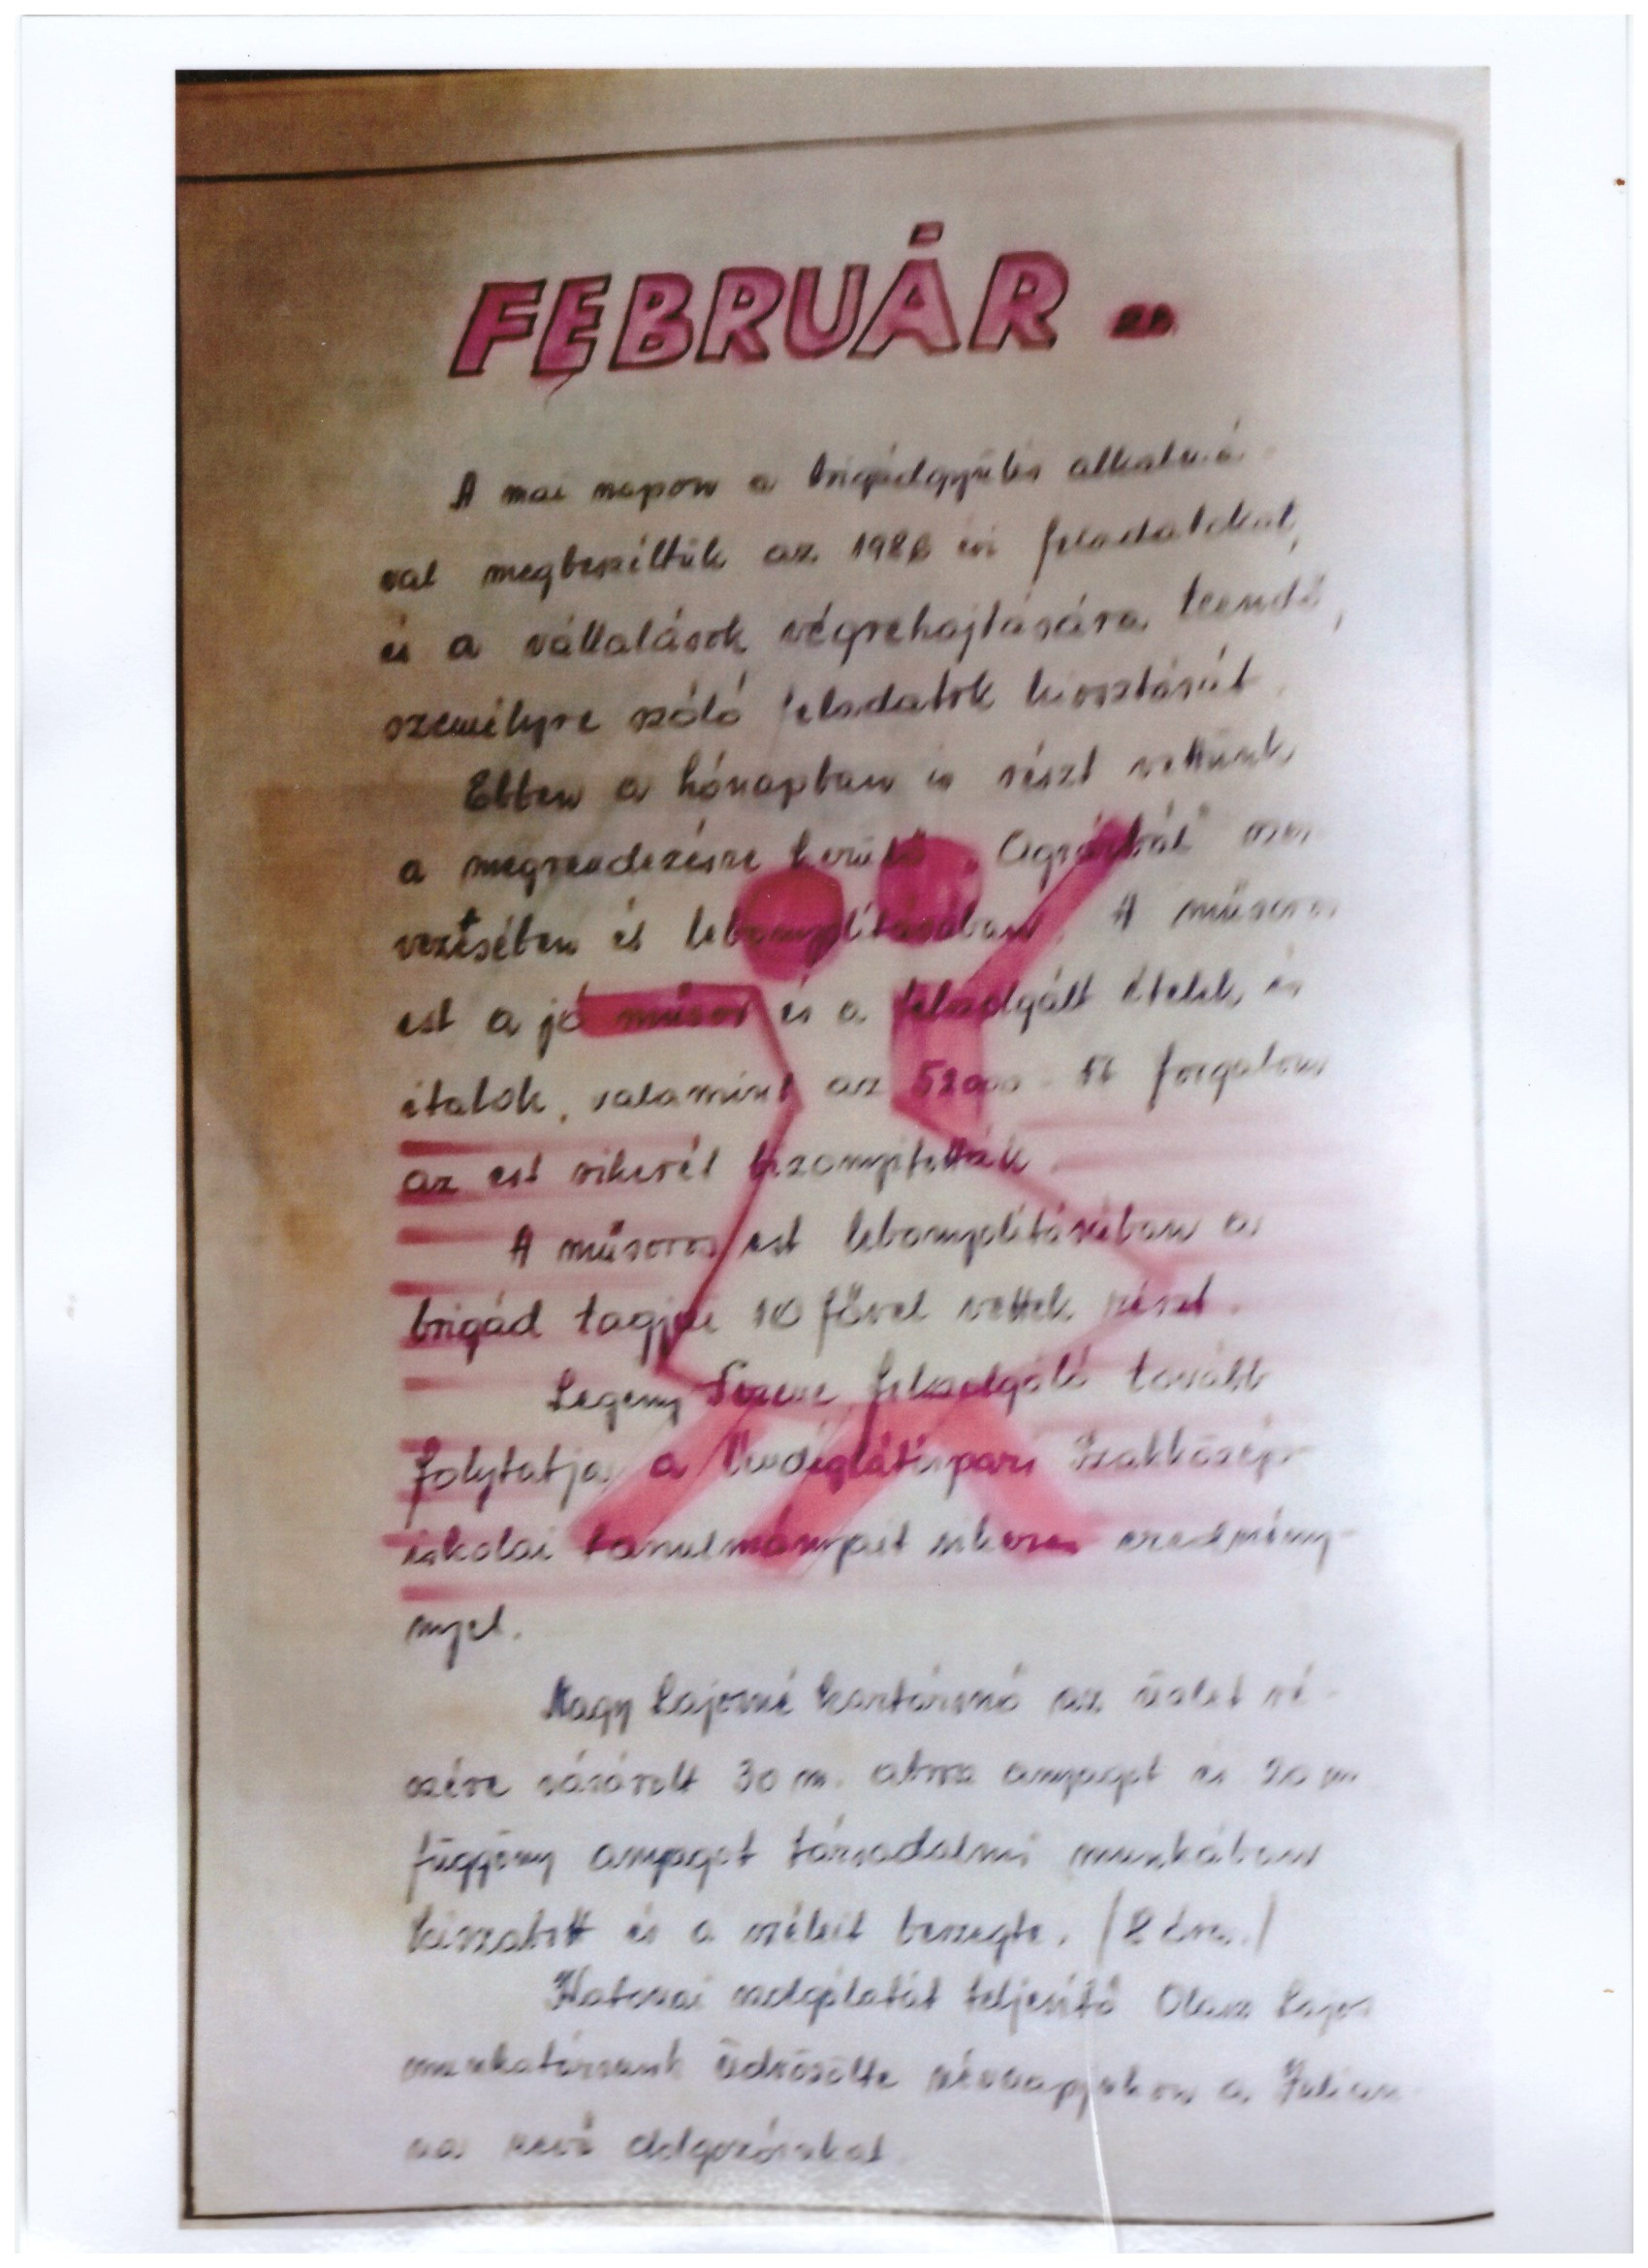 FEBRUÁR
A mai napon a brigádgyűlés alkalmá-
val megbeszéltük az 198 évi feladatokat,
és a vállalások végrehajtására teendő,
személyre szóló feladatok kiosztását.
Ebben a hónapban is részt vettünk
a megrendezésre kerülő „Agrárbál" szer
vezésében és lebonyolításában. A műsoros
est a jó műsor és a felszolgált ételek és
italok, valamint az 52000 Ft forgalom
az est sikerét bizonyították.
A műsoros est lebonyolításában a
brigád tagjai 10 fővel vettek részt.
Legeny felszolgáló tovább
folytatja a Vendéglátóipari Szakközép-
iskolai tanulmányait sikeres eredmény-
nyel.
Nagy Lajosné kartársnő az üzlet ré-
szére vásárolt 30 m. abrosz anyagot és 20 m
függöny anyagot társadalmi munkában
kiszabott és a széleit beszegte. (8 óra.)
Katonai szolgálatát teljesítő Olasz Lajos
munkatársunk üdvözölte névnapjukon a Julian
na nevű dolgozóinkat.